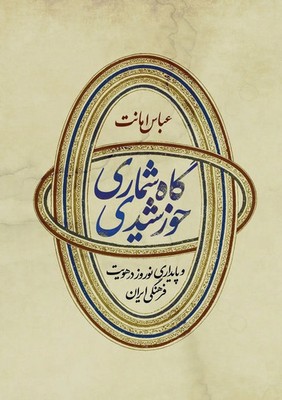 عباس امانت
گاه‌شماری
خورشیدی
و پایداری نوروز در هویت
فرهنگی ایران